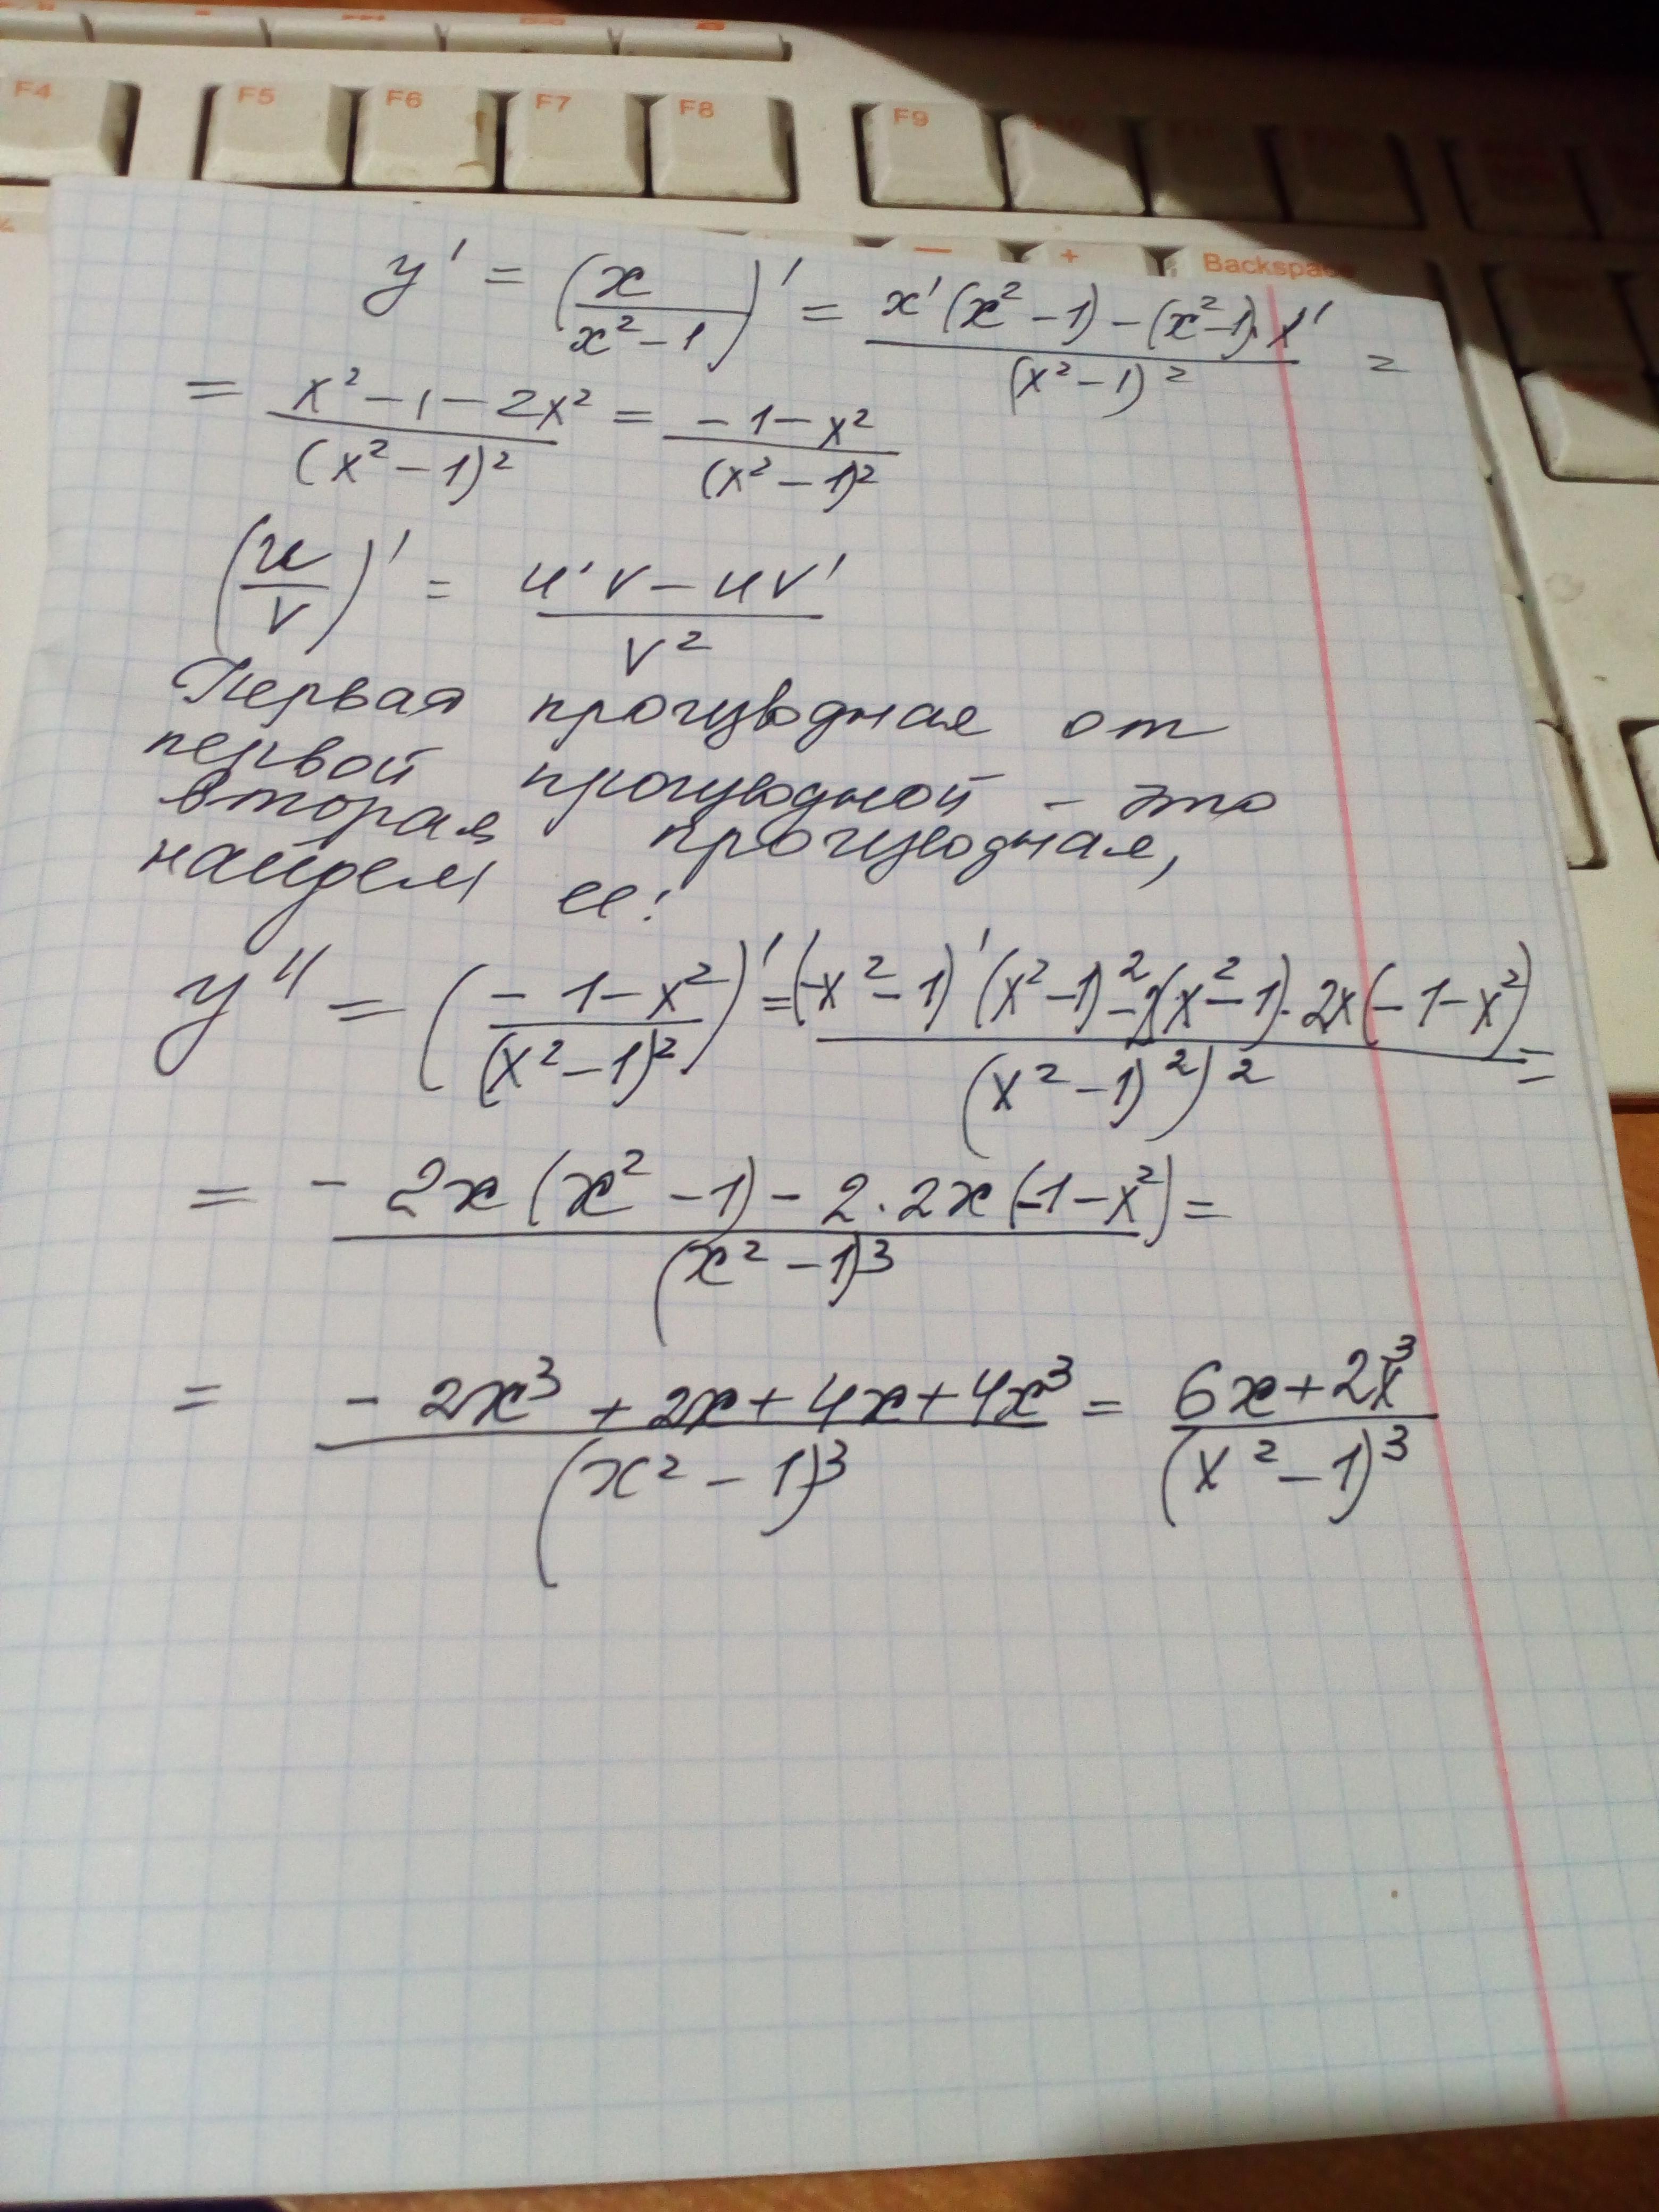 F4 F5 F6 F7 F8 F9
— + Backspace
y' = (x/(x² - 1))' = (x'(x² - 1) - (x² - 1) · x')/(x² - 1)² =
= (x² - 1 - 2x²)/(x² - 1)² = (-1 - x²)/(x² - 1)²
(u/v)' = (u'v - uv')/v²
Первая производная от
первой производной - это
вторая производная,
найдем ее:
y'' = ((-1 - x²)/(x² - 1)²)' = ((-x² - 1)'(x² - 1)² - 2(x² - 1) · 2x(-1 - x²))/(x² - 1)²)² =
= (- 2x(x² - 1) - 2 · 2x(-1 - x²))/(x² - 1)³ =
= (- 2x³ + 2x + 4x + 4x³)/(x² - 1)³ = (6x + 2x³)/(x² - 1)³